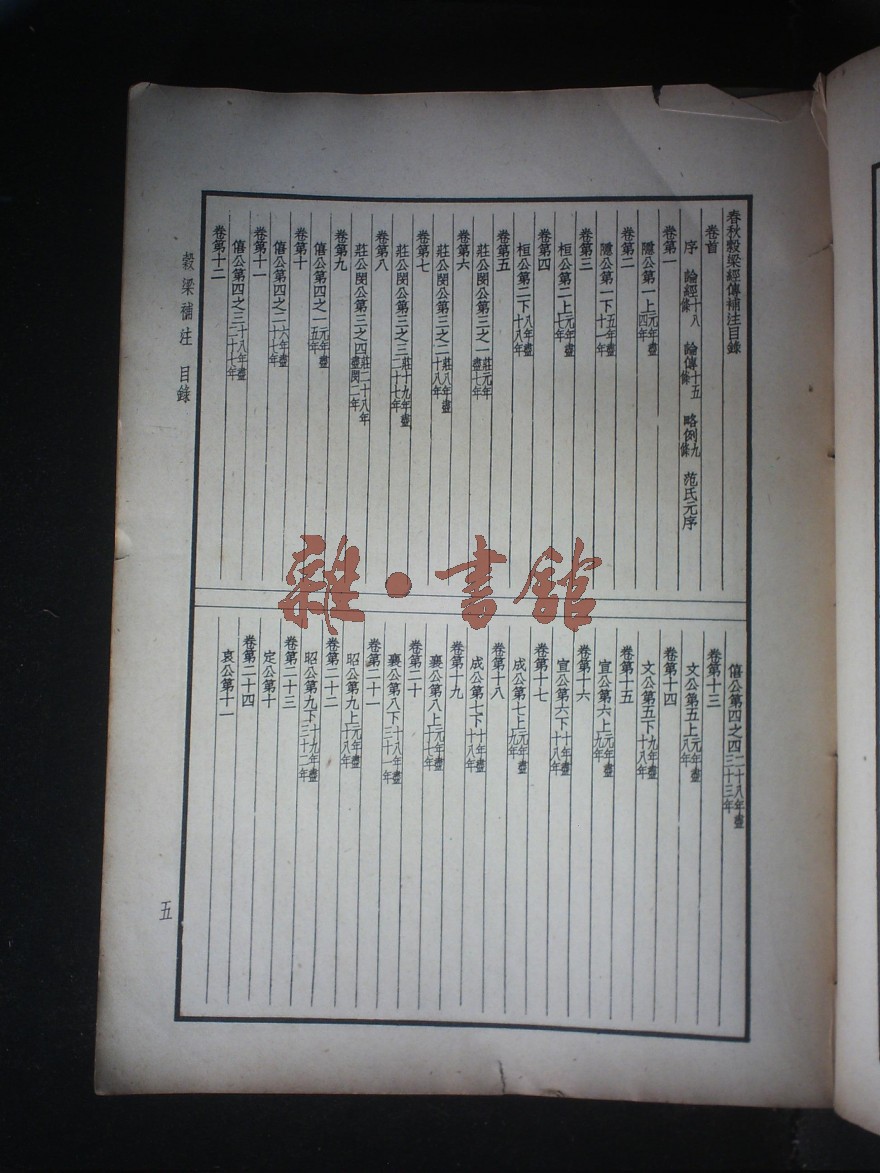 春秋穀梁經傳補注目錄
卷首
序 論經十八條 論傳十五條 略例九條 范氏元序
卷第一
隱公第一上元年盡四年
卷第二
隱公第一下五年盡十一年
卷第三
桓公第二上元年盡七年
卷第四
桓公第二下八年盡十八年
卷第五
莊公閔公第三之一莊元年盡七年
卷第六
莊公閔公第三之二莊八年盡十八年
卷第七
莊公閔公第三之三莊十九年盡二十七年
卷第八
莊公閔公第三之四莊二十八年盡閔二年
卷第九
僖公第四之一元年盡五年
卷第十
僖公第四之二六年盡十七年
卷第十一
僖公第四之三十八年盡二十七年
卷第十二
僖公第四之四二十八年盡三十三年
卷第十三
文公第五上元年盡八年
卷第十四
文公第五下九年盡十八年
卷第十五
宣公第六上元年盡九年
卷第十六
宣公第六下十年盡十八年
卷第十七
成公第七上元年盡九年
卷第十八
成公第七下十年盡十八年
卷第十九
襄公第八上元年盡十七年
卷第二十
襄公第八下十八年盡三十一年
卷第二十一
昭公第九上元年盡十八年
卷第二十二
昭公第九下十九年盡三十二年
卷第二十三
定公第十
卷第二十四
哀公第十一
穀梁補注 目錄
五
雜·書館